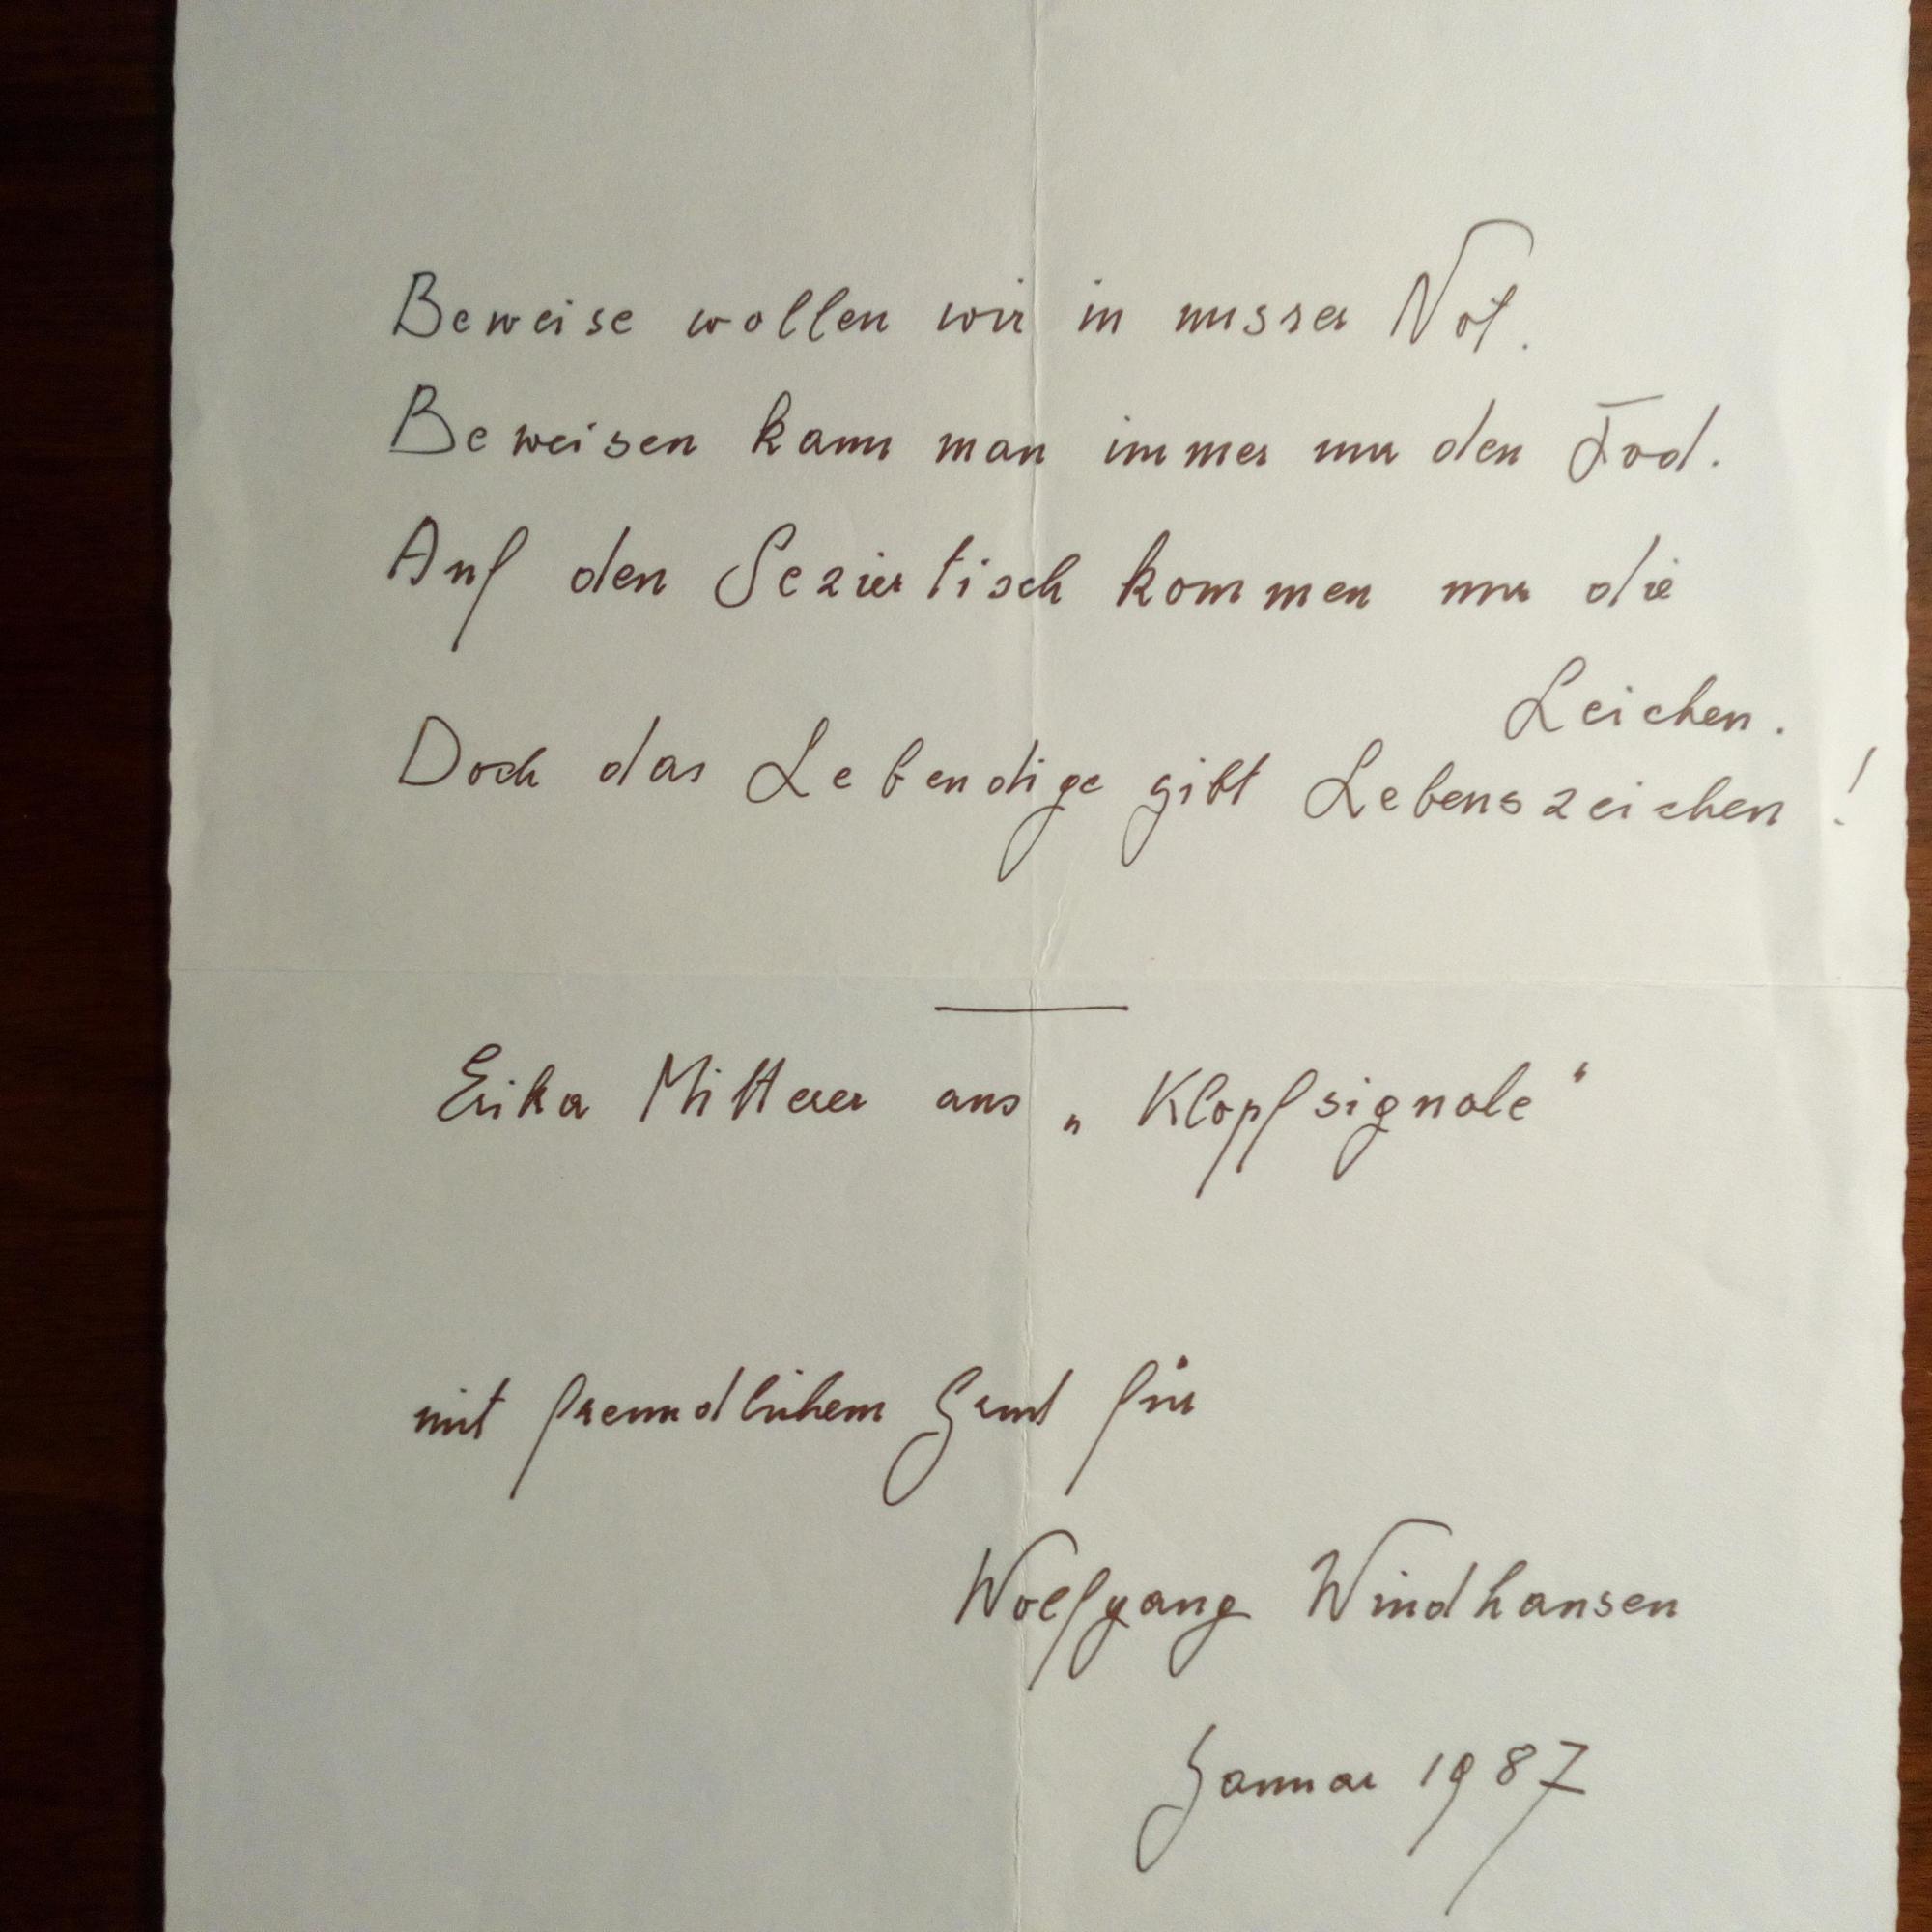 Beweise wollen wir in unsrer Not.
Beweisen kann man immer nur den Tod.
Auf den Seziertisch kommen nur die
Leichen.
Doch das Lebendige gibt Lebenszeichen!
Erika Mitterer aus „Klopfsignale“
mit freundlichem Gruß für
Wolfgang Windhausen
Januar 1987